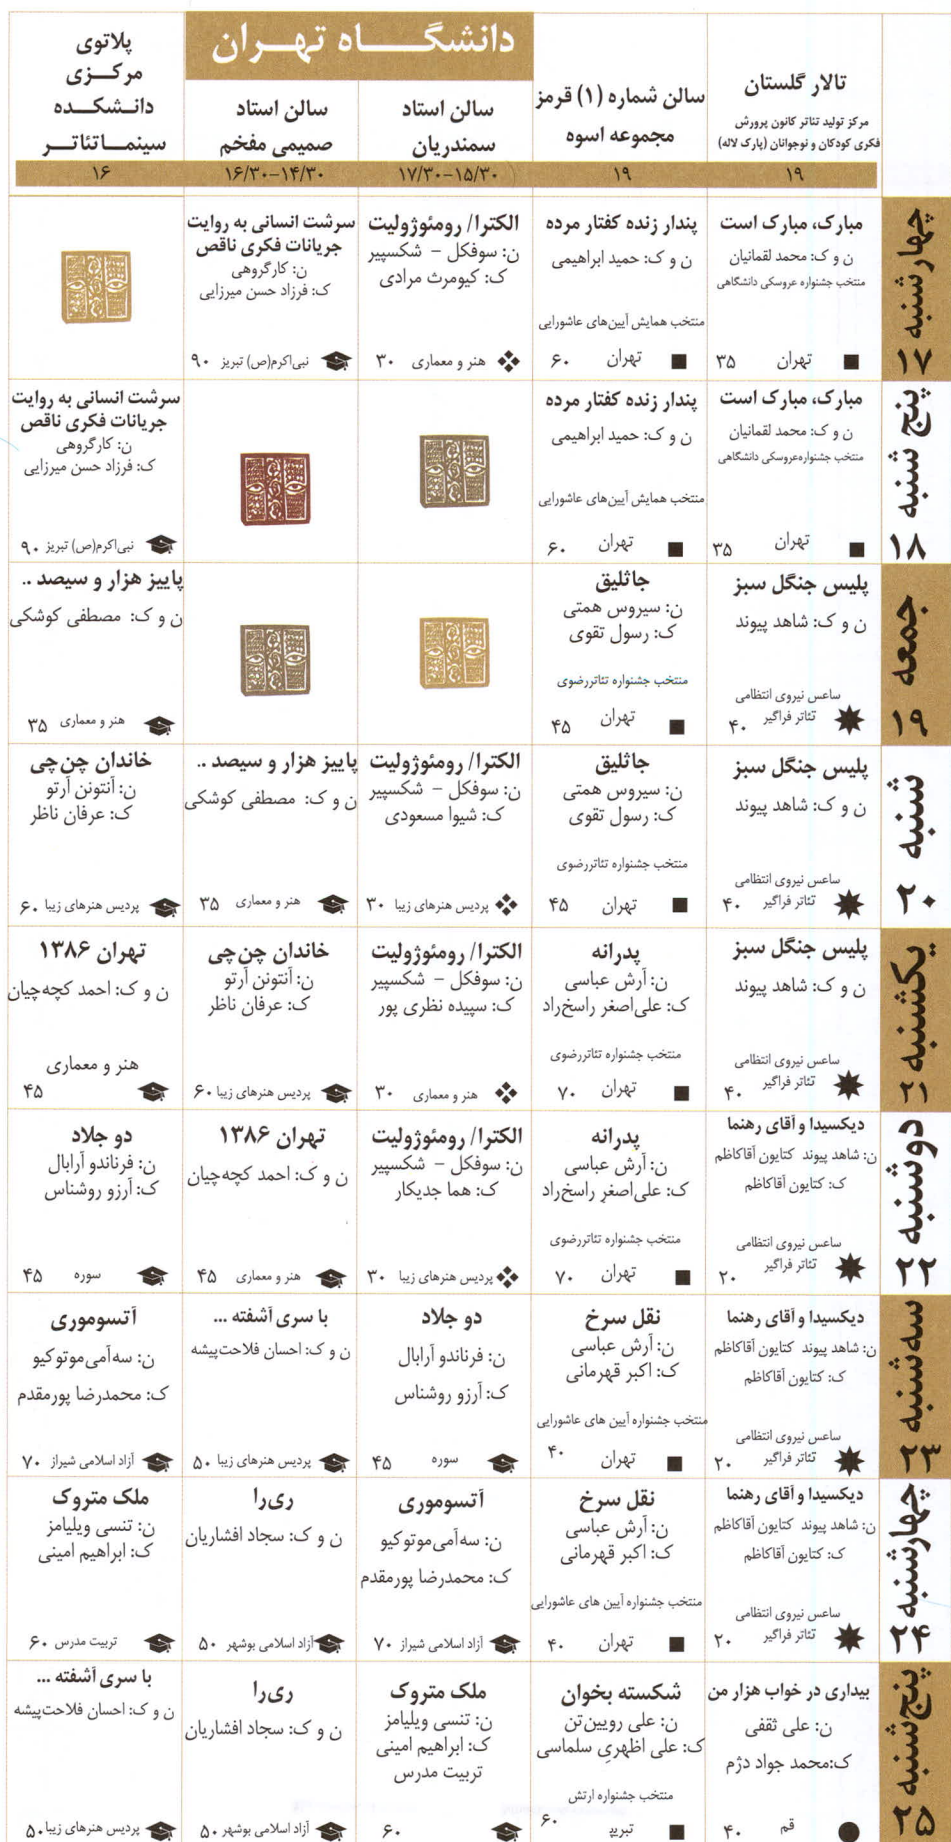 تالار گلستان
مرکز تولید تئاتر کانون پرورش
فکری کودکان و نوجوانان (پارک لاله)
۱۹
سالن شماره (۱) قرمز
مجموعه اسوه
۱۹
دانشگاه تهران
سالن استاد
سمندریان
۱۷/۳۰-۱۵/۳۰
سالن استاد
صمیمی مفخم
۱۶/۳۰-۱۴/۳۰
پلاتوی
مرکزی
دانشکده
سینماتئاتر
۱۶
چهارشنبه ۱۷
مبارک، مبارک است
ن و ک: محمد لقمانیان
منتخب جشنواره عروسکی دانشگاهی
تهران ۳۵
پندار زنده کفتار مرده
ن و ک: حمید ابراهیمی
منتخب همایش آیین‌های عاشورایی
تهران ۶۰
الکترا/ رومئوژولیت
ن: سوفکل - شکسپیر
ک: کیومرث مرادی
هنر و معماری ۳۰
سرشت انسانی به روایت
جریانات فکری ناقص
ن: کارگروهی
ک: فرزاد حسن میرزایی
نبی‌اکرم(ص) تبریز ۹۰
پنج شنبه ۱۸
مبارک، مبارک است
ن و ک: محمد لقمانیان
منتخب جشنواره‌عروسکی دانشگاهی
تهران ۳۵
پندار زنده کفتار مرده
ن و ک: حمید ابراهیمی
منتخب همایش آیین‌های عاشورایی
تهران ۶۰
سرشت انسانی به روایت
جریانات فکری ناقص
ن: کارگروهی
ک: فرزاد حسن میرزایی
نبی‌اکرم(ص) تبریز ۹۰
جمعه ۱۹
پلیس جنگل سبز
ن و ک: شاهد پیوند
ساعس نیروی انتظامی
تئاتر فراگیر ۴۰
جاثلیق
ن: سیروس همتی
ک: رسول تقوی
منتخب جشنواره تئاتررضوی
تهران ۴۵
پاییز هزار و سیصد ..
ن و ک: مصطفی کوشکی
هنر و معماری ۳۵
شنبه ۲۰
پلیس جنگل سبز
ن و ک: شاهد پیوند
ساعس نیروی انتظامی
تئاتر فراگیر ۴۰
جاثلیق
ن: سیروس همتی
ک: رسول تقوی
منتخب جشنواره تئاتررضوی
تهران ۴۵
الکترا/ رومئوژولیت
ن: سوفکل - شکسپیر
ک: شیوا مسعودی
پردیس هنرهای زیبا ۳۰
پاییز هزار و سیصد ..
ن و ک: مصطفی کوشکی
هنر و معماری ۳۵
خاندان چن‌چی
ن: آنتونن آرتو
ک: عرفان ناظر
پردیس هنرهای زیبا ۶۰
یکشنبه ۲۱
پلیس جنگل سبز
ن و ک: شاهد پیوند
ساعس نیروی انتظامی
تئاتر فراگیر ۴۰
پدرانه
ن: آرش عباسی
ک: علی‌اصغر راسخ‌راد
منتخب جشنواره تئاتررضوی
تهران ۷۰
الکترا/ رومئوژولیت
ن: سوفکل - شکسپیر
ک: سپیده نظری پور
هنر و معماری ۳۰
خاندان چن‌چی
ن: آنتونن آرتو
ک: عرفان ناظر
پردیس هنرهای زیبا ۶۰
تهران ۱۳۸۶
ن و ک: احمد کچه‌چیان
هنر و معماری
۴۵
دوشنبه ۲۲
دیکسیدا و آقای رهنما
ن: شاهد پیوند کتایون آقاکاظم
ک: کتایون آقاکاظم
ساعس نیروی انتظامی
تئاتر فراگیر ۲۰
پدرانه
ن: آرش عباسی
ک: علی‌اصغر راسخ‌راد
منتخب جشنواره تئاتررضوی
تهران ۷۰
الکترا/ رومئوژولیت
ن: سوفکل - شکسپیر
ک: هما جدیکار
پردیس هنرهای زیبا ۳۰
تهران ۱۳۸۶
ن و ک: احمد کچه‌چیان
هنر و معماری ۴۵
دو جلاد
ن: فرناندو آرابال
ک: آرزو روشناس
سوره ۴۵
سه‌شنبه ۲۳
دیکسیدا و آقای رهنما
ن: شاهد پیوند کتایون آقاکاظم
ک: کتایون آقاکاظم
ساعس نیروی انتظامی
تئاتر فراگیر ۲۰
نقل سرخ
ن: آرش عباسی
ک: اکبر قهرمانی
منتخب جشنواره آیین های عاشورایی
تهران ۴۰
دو جلاد
ن: فرناندو آرابال
ک: آرزو روشناس
سوره ۴۵
با سری آشفته ...
ن و ک: احسان فلاحت‌پیشه
پردیس هنرهای زیبا ۵۰
آتسوموری
ن: سه‌آمی‌موتوکیو
ک: محمدرضا پورمقدم
آزاد اسلامی شیراز ۷۰
چهارشنبه ۲۴
دیکسیدا و آقای رهنما
ن: شاهد پیوند کتایون آقاکاظم
ک: کتایون آقاکاظم
ساعس نیروی انتظامی
تئاتر فراگیر ۲۰
نقل سرخ
ن: آرش عباسی
ک: اکبر قهرمانی
منتخب جشنواره آیین های عاشورایی
تهران ۴۰
آتسوموری
ن: سه‌آمی‌موتوکیو
ک: محمدرضا پورمقدم
آزاد اسلامی شیراز ۷۰
ری‌را
ن و ک: سجاد افشاریان
آزاد اسلامی بوشهر ۵۰
ملک متروک
ن: تنسی ویلیامز
ک: ابراهیم امینی
تربیت مدرس ۶۰
پنج‌شنبه ۲۵
بیداری در خواب هزار من
ن: علی ثقفی
ک:محمد جواد دژم
قم ۴۰
شکسته بخوان
ن: علی رویین‌تن
ک: علی اظهریِ سلماسی
منتخب جشنواره ارتش
تبریز ۶۰
ملک متروک
ن: تنسی ویلیامز
ک: ابراهیم امینی
تربیت مدرس
۶۰
ری‌را
ن و ک: سجاد افشاریان
آزاد اسلامی بوشهر ۵۰
با سری آشفته ...
ن و ک: احسان فلاحت‌پیشه
پردیس هنرهای زیبا ۵۰